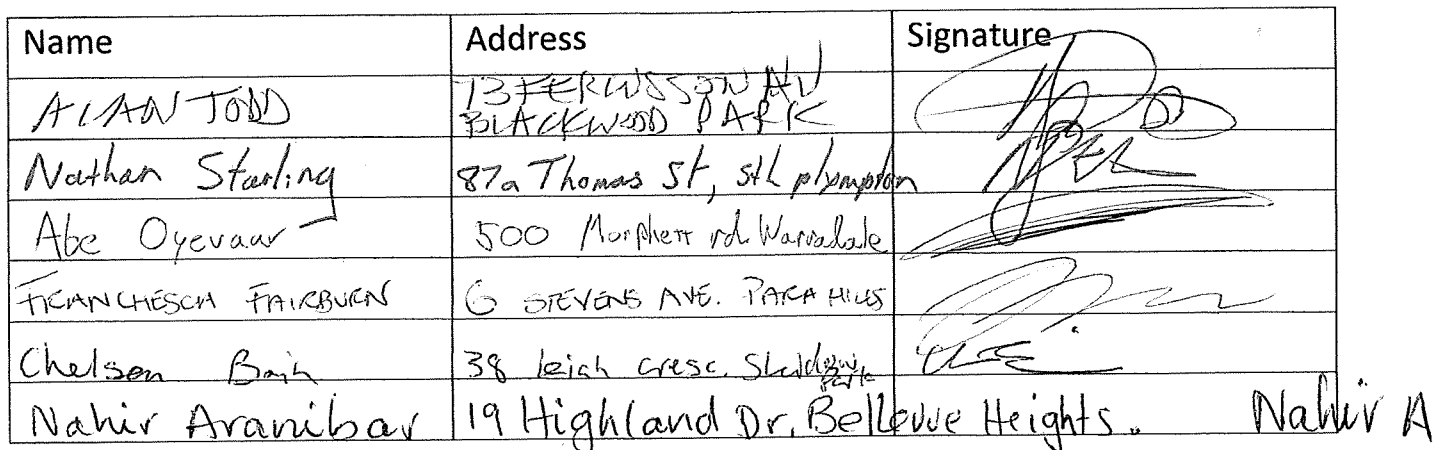 Name Address Signature
ALAN TODD 73 FERWSSON AV
BLACKWOOD PARK
Nathan Starling 87a Thomas St, Sth plympton
Abe Oyevaar 500 Morphett rd. Warradale
FRANCHESCA FAIRBURN 6 STEVENS AVE. PARA HILLS
Chelsea Bain 38 leigh cresc. Sheidow
Park
Nahir Aranibar 19 Highland Dr, Bellevue Heights. Nahir A